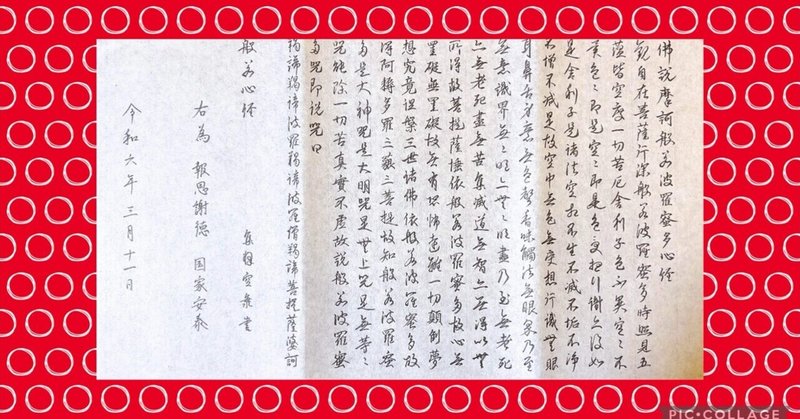 佛説摩訶般若波羅蜜多心経
観自在菩薩行深般若波羅蜜多時照見五
蘊皆空度一切苦厄舎利子色不異空々不
異色々即是空々即是色受想行識亦復如
是舎利子是諸法空相不生不滅不垢不浄
不増不減是故空中無色無受想行識無眼
耳鼻舌身意無色聲香味觸法無眼界乃至
無意識界無々明亦無々明盡乃至無老死
亦無老死盡無苦集滅道無智亦無得以無
所得故菩提薩埵依般若波羅蜜多故心無
罣礙無罣礙故無有恐怖遠離一切顛倒夢
想究竟涅槃三世諸佛依般若波羅蜜多故
得阿耨多羅三藐三菩提故知般若波羅蜜
多是大神咒是大明咒是無上咒是無等々
咒能除一切苦真実不虚故説般若波羅蜜
多咒即説咒曰
羯諦羯諦波羅羯諦波羅僧羯諦菩提薩婆訶
般若心経
右為 報恩謝徳 国家安泰
令和六年 三月十一日
PIC•COLLAGE